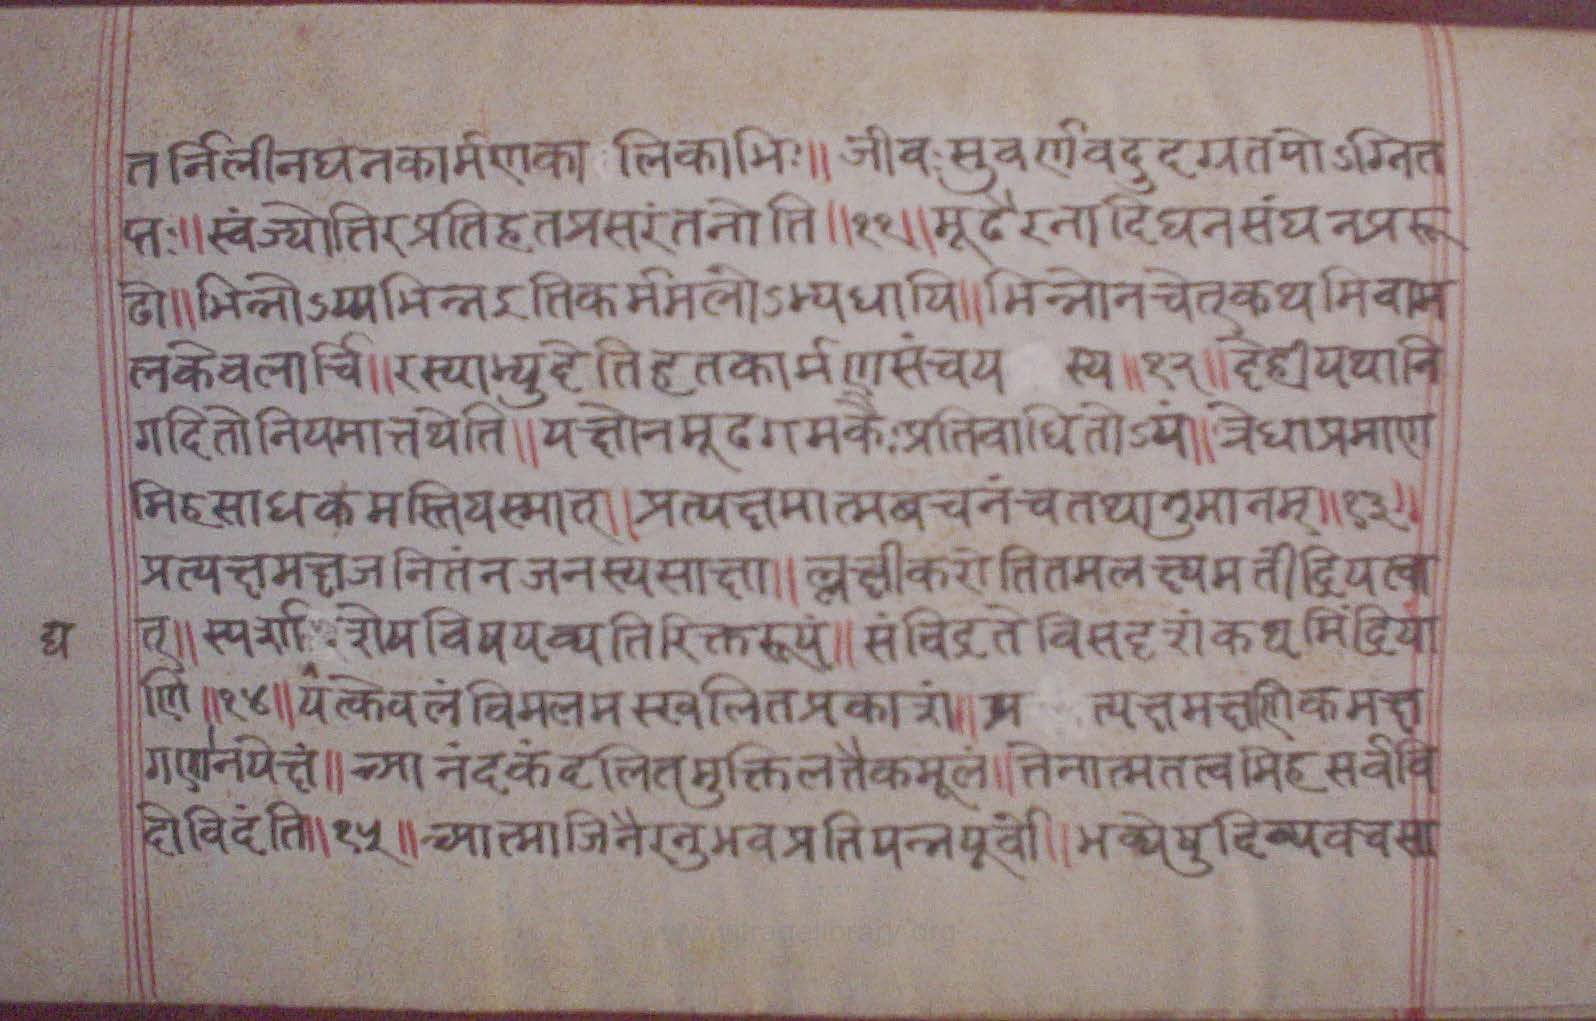 तर्निलीनघनकार्मणका लिकाभिः॥ जीवःसुवर्णवदुदग्रतपोऽग्नित
प्तः॥स्वंज्योतिरप्रतिहतप्रसरंतनोति॥११॥मूढैरनादिघनसंघनप्ररू
ढो॥भिन्नोऽप्यभिन्नइतिकर्ममलोऽभ्यधायि॥भिन्नोनचेत्कथमिवाम
लकेवलार्चि॥रस्याभ्युदेतिहतकार्मणसंचय स्य॥१२॥देहीयथानि
गदितोनियमात्तथेति॥यक्षौनमूढगमकैःप्रतिवाधितोऽयं॥त्रेधाप्रमाण
मिहसाधकमस्तियस्मात्॥प्रत्यक्षमात्मबचनंचतथानुमानम्॥१३॥
प्रत्यक्षमक्षजनितंनजनस्यसाक्षा॥ल्लक्षीकरोतितमलक्ष्यमतींद्रियत्वा
त्॥स्पर्शा शेषविषयव्यतिरिक्तरूपं॥संविद्रतेविसदृशंकथमिंद्रिया
द्य
णि॥१४॥यत्केवलंविमलमस्खलितप्रकाशं॥प्र त्यक्षमक्षणिकमक्ष
गणानपेक्षं॥आनंदकंदलितमुक्तिलतैकमूलं॥तेनात्मतत्वमिहसर्ववि
दोविदंति॥१५॥आत्माजिनैरनुभवप्रतिपन्नपूर्वो॥भव्येषुदिव्यवचसा